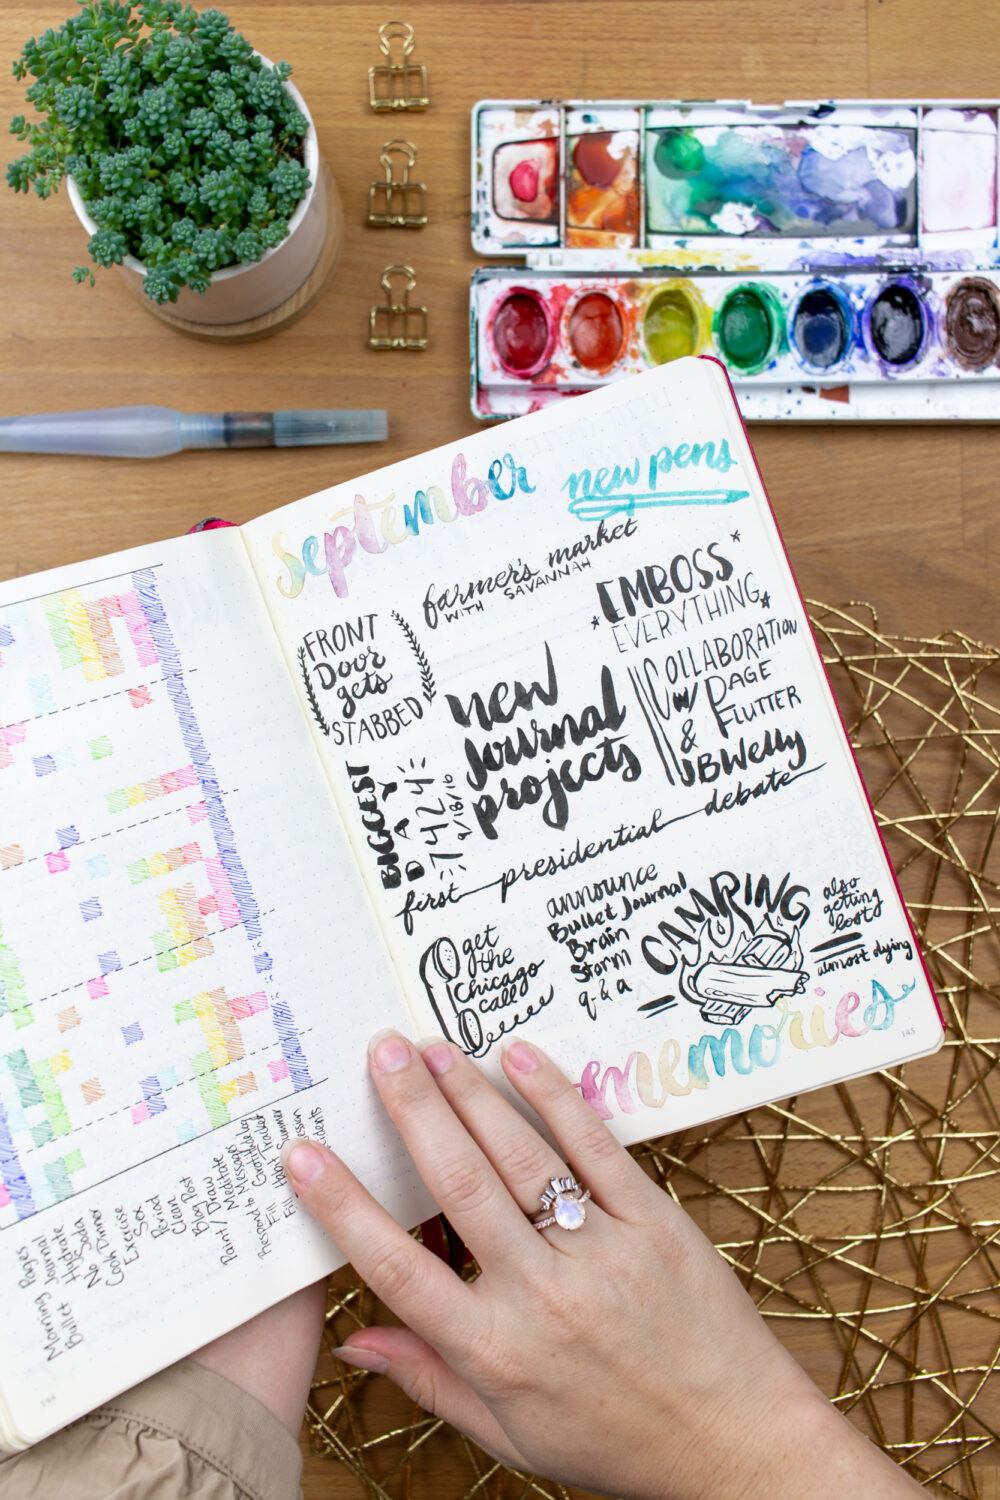 september
new pens
farmer's market
WITH SAVANNAH
EMBOSS
EVERYTHING
FRONT
Door
gets
STABBED
new
journal
projects
COLLABORATION
w/ PAGE
FLUTTER
&
JBWelly
BIGGEST
DAY
7424
9/18/16
first presidential debate
get
the
Chicago
call
announce
Bullet Journal
Brain
Storm
q & a
CAMPING
also
getting
lost
almost dying
memories
145
Morning Pages
Bullet Journal
Hydrate
No Soda
Cook Dinner
Exercise
Sex
Period
Clean
Blog Post
Paint/Draw
Meditate
Respond to Messages
Gratitude Log
144